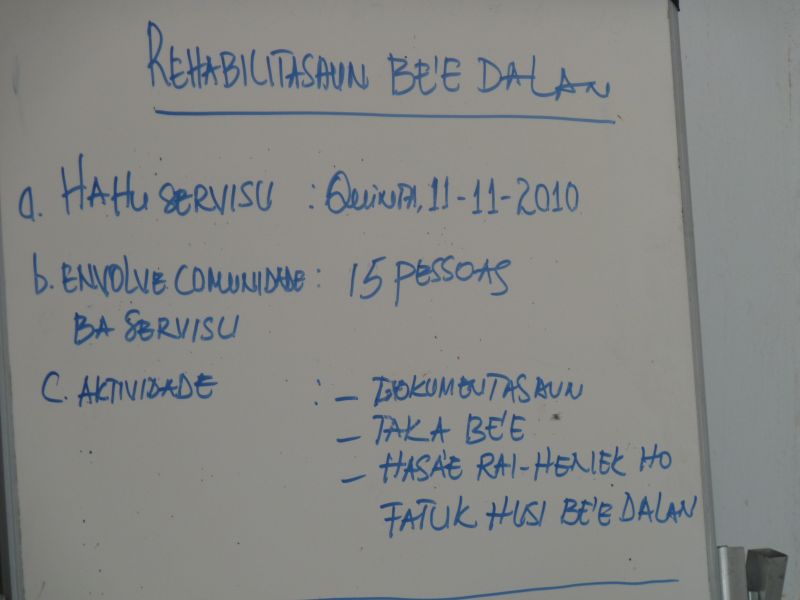 REHABILITASAUN BE'E DALAN
a. HAHU SERVISU : QUINTA, 11-11-2010
b. ENVOLVE COMUNIDADE : 15 PESSOAS
BA SERVISU
C. AKTIVIDADE : - DOKUMENTASAUN
- TAKA BE'E
- HASA'E RAI-HENEK HO
FATUK HUSI BE'E DALAN